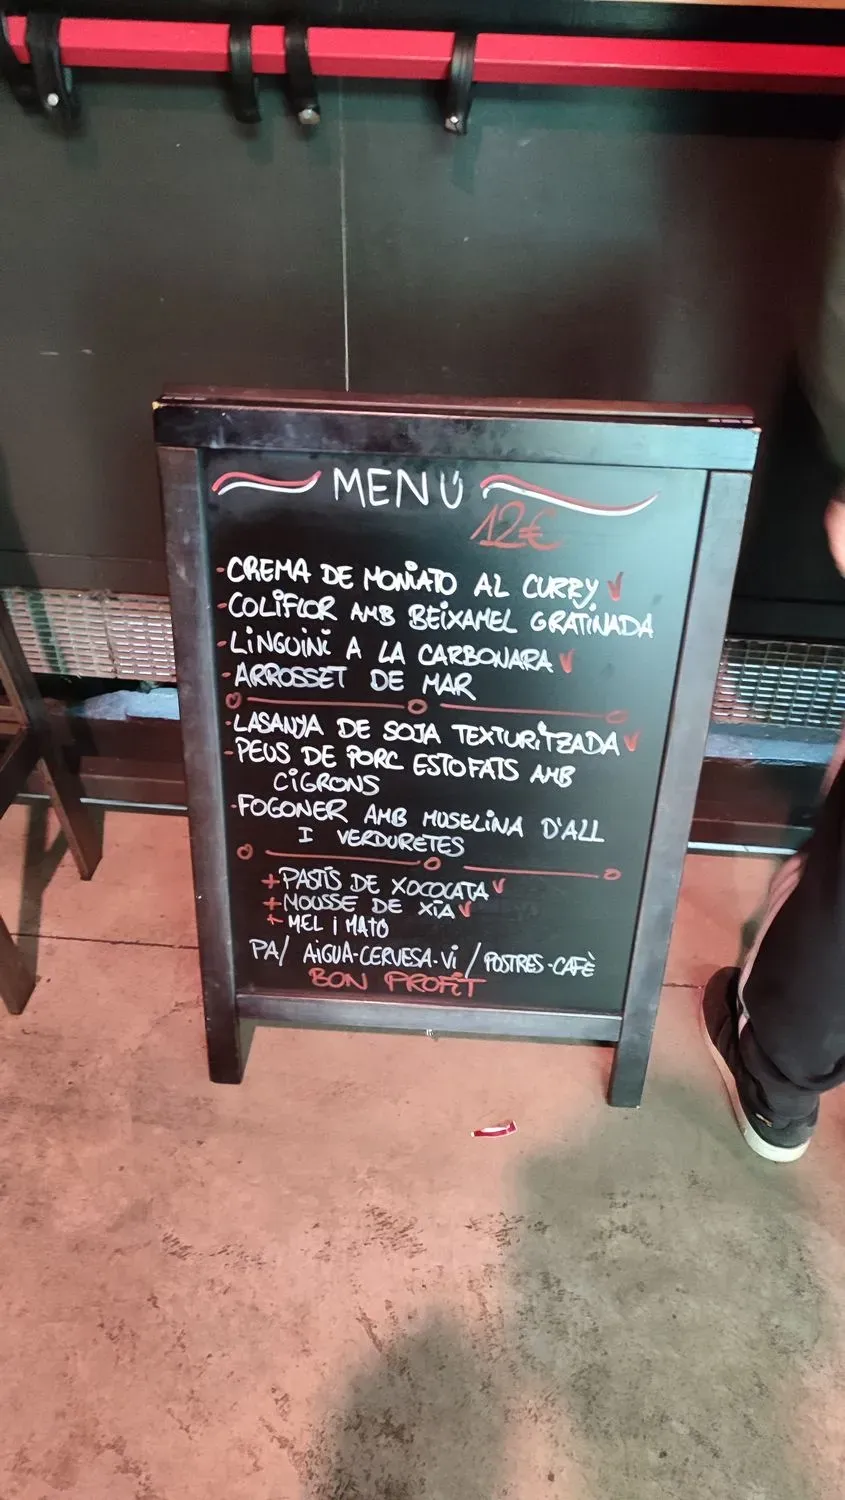 MENÚ
12€
-CREMA DE MONIATO AL CURRY V
-COLIFLOR AMB BEIXAMEL GRATINADA
-LINGUINI A LA CARBONARA V
-ARROSSET DE MAR
-LASANYA DE SOJA TEXTURITZADA V
-PEUS DE PORC ESTOFATS AMB
CIGRONS
-FOGONER AMB MUSELINA D'ALL
I VERDURETES
+PASTÍS DE XOCOLATA V
+MOUSSE DE XIA V
+MEL I MATÓ
PA/ AIGUA-CERVESA-VI / POSTRES-CAFÈ
BON PROFIT